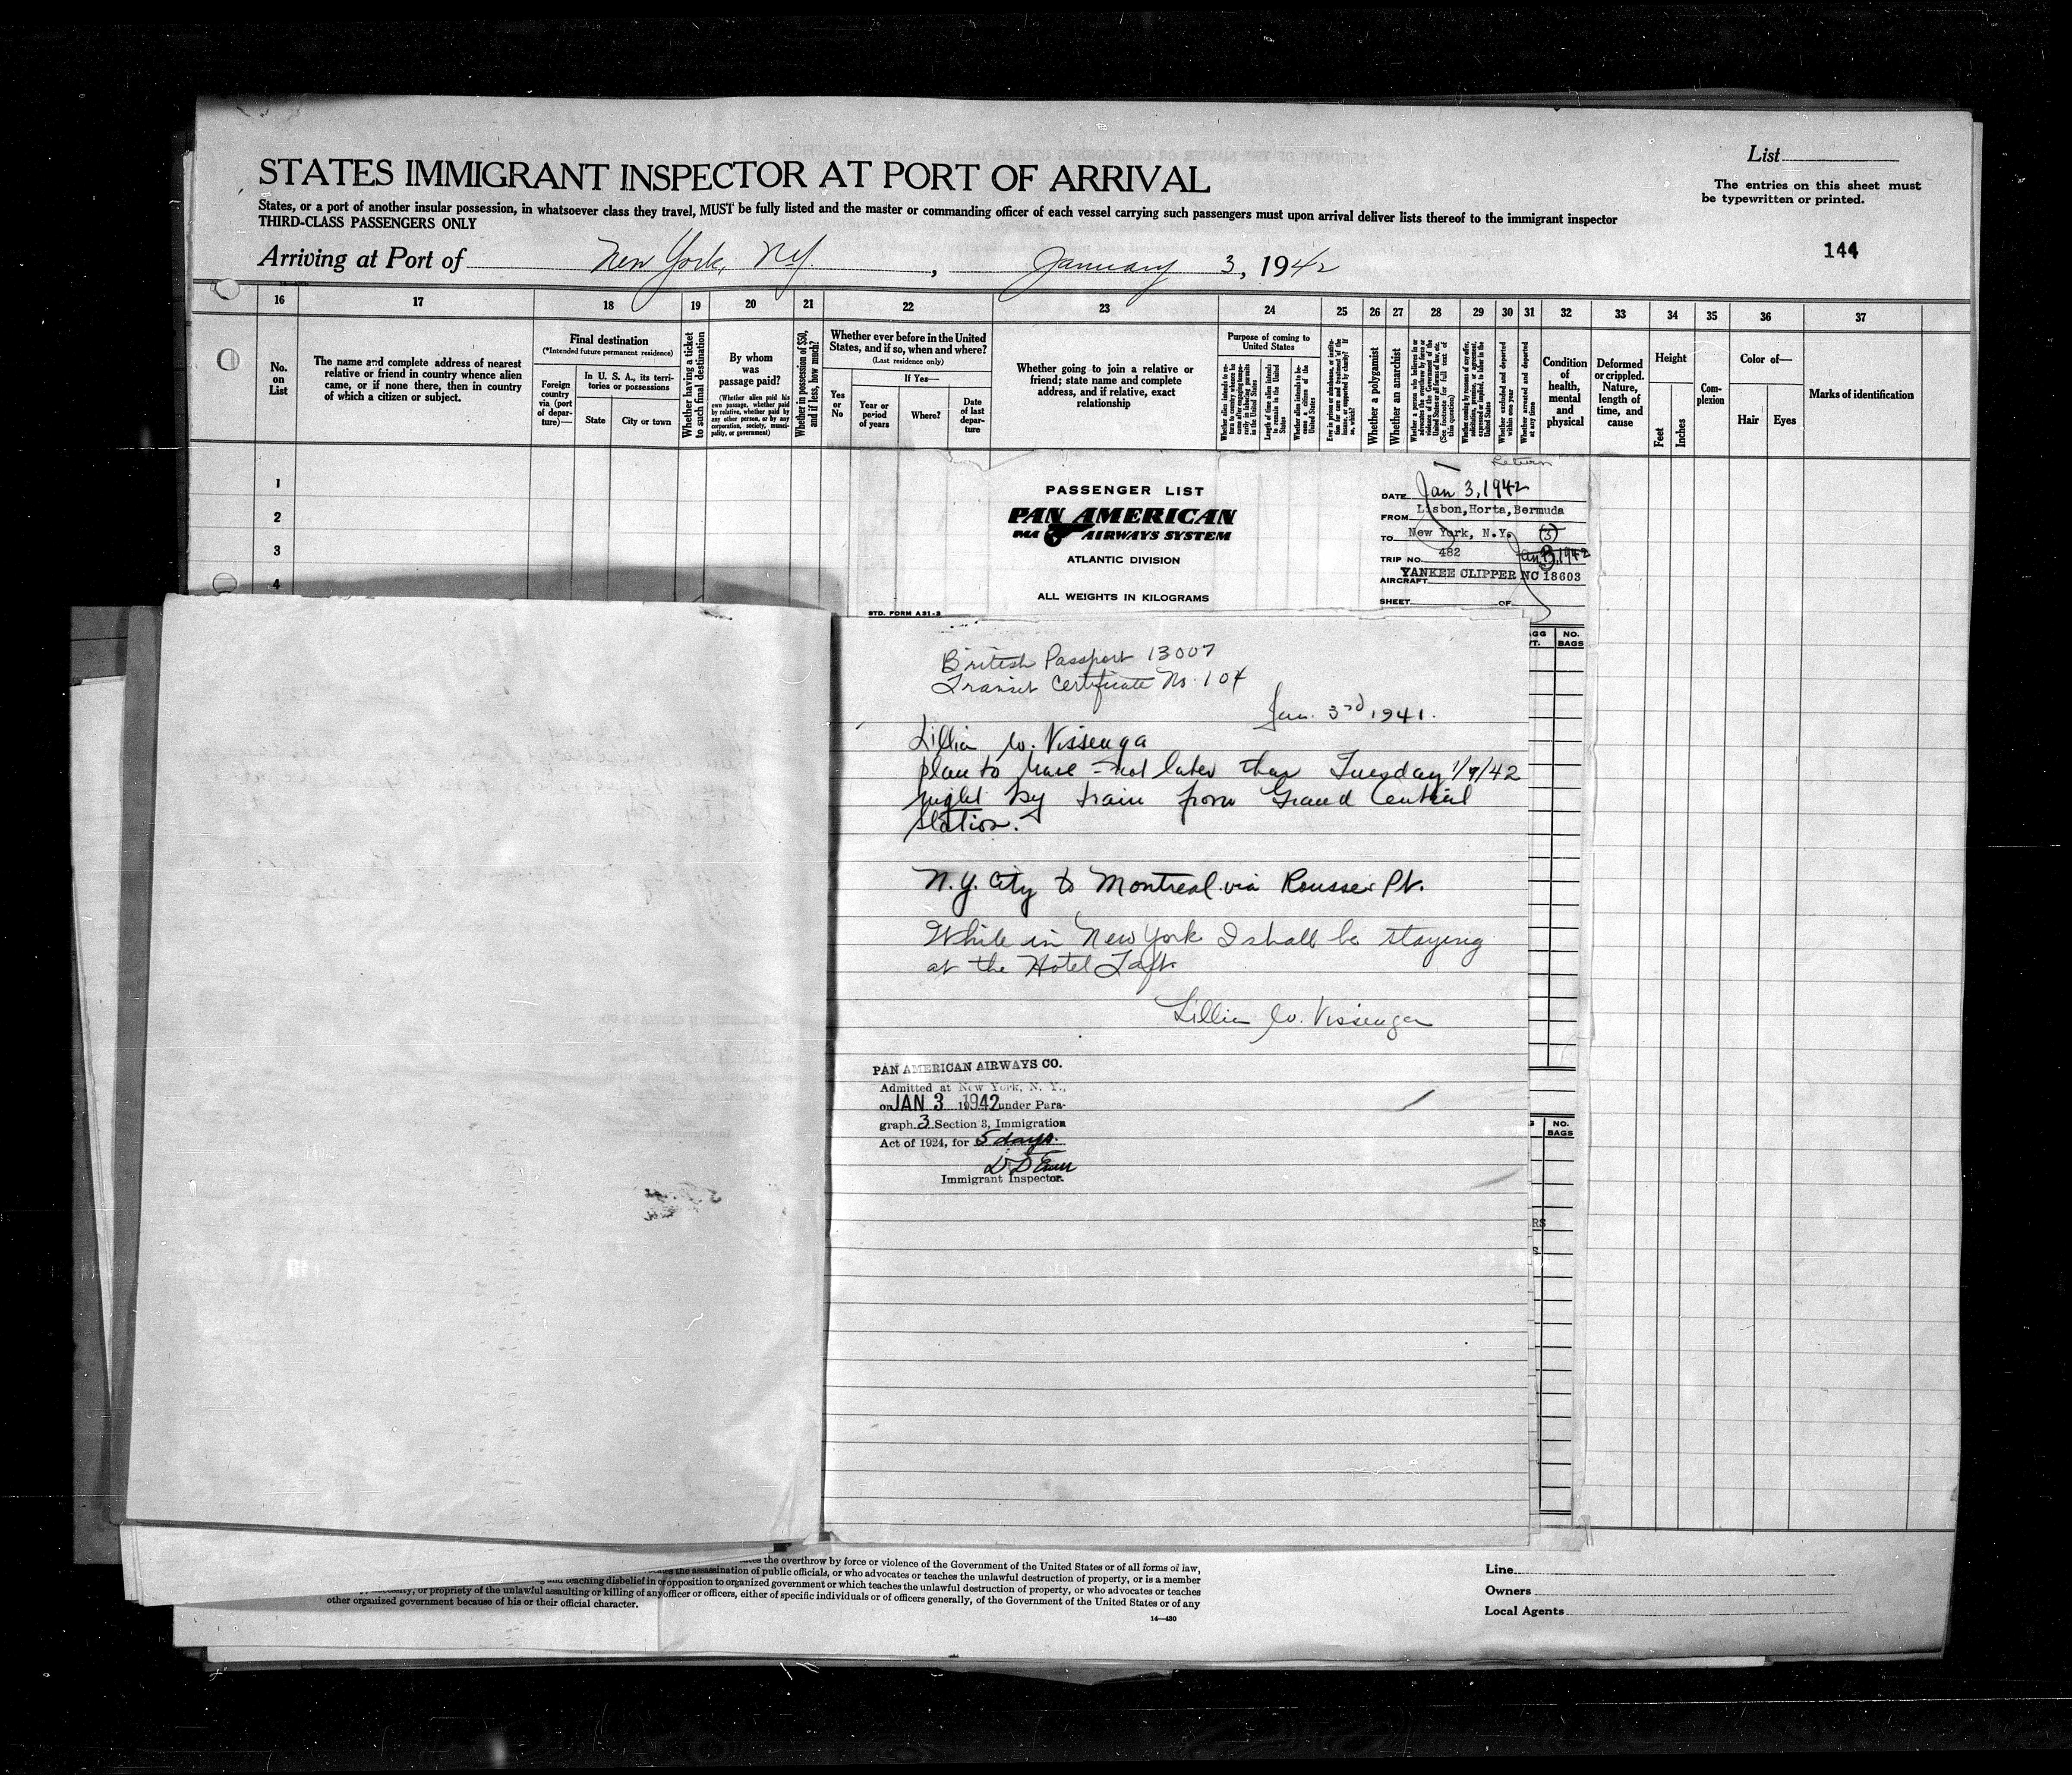 STATES IMMIGRANT INSPECTOR AT PORT OF ARRIVAL
List
The entries on this sheet must
be typewritten or printed.
States, or a port of another insular possession, in whatsoever class they travel, MUST be fully listed and the master or commanding officer of each vessel carrying such passengers must upon arrival deliver lists thereof to the immigrant inspector
THIRD-CLASS PASSENGERS ONLY
144
Arriving at Port of New York, N.Y. , January 3, 1942
16 17 18 19 20 21 22 23 24 25 26 27 28 29 30 31 32 33 34 35 36 37
No.
on
List
The name and complete address of nearest
relative or friend in country whence alien
came, or if none there, then in country
of which a citizen or subject.
Final destination
(*Intended future permanent residence)
Foreign
country
via (port
of depar-
ture)—
In U. S. A., its terri-
tories or possessions
State
City or town
Whether having a ticket
to such final destination
By whom
was
passage paid?
(Whether alien paid his
own passage, whether paid
by relative, whether paid by
any other person, or by any
corporation, society, munici-
pality, or government)
Whether in possession of $50,
and if less, how much?
Whether ever before in the United
States, and if so, when and where?
(Last residence only)
Yes
or
No
If Yes—
Year or
period
of years
Where?
Date
of last
depar-
ture
Whether going to join a relative or
friend; state name and complete
address, and if relative, exact
relationship
Purpose of coming to
United States
Length of time alien intends
to remain in the United
States
Whether a polygamist
Whether an anarchist
Whether arrested and deported
at any time
Condition
of
health,
mental
and
physical
Deformed
or crippled.
Nature,
length of
time, and
cause
Height
Feet
Inches
Com-
plexion
Color of—
Hair
Eyes
Marks of identification
1
2
3
4
Return
PASSENGER LIST
PAN AMERICAN
PAA AIRWAYS SYSTEM
ATLANTIC DIVISION
ALL WEIGHTS IN KILOGRAMS
STD. FORM A31-3
DATE Jan 3, 1942
FROM Lisbon, Horta, Bermuda
TO New York, N.Y. (3)
TRIP NO. 482 Jan 3, 1942
AIRCRAFT YANKEE CLIPPER NC 18603
SHEET OF
AGG
WT.
NO.
BAGS
British Passport 13007
Transit Certificate No. 104
Jan. 3rd 1941.
Lillia W. Vissenga
plan to leave - not later than Tuesday 1/7/42
night by train from Grand Central
Station.
N.Y. City to Montreal via Rouses Pt.
While in New York I shall be staying
at the Hotel Taft
Lillia W. Vissenga
PAN AMERICAN AIRWAYS CO.
Admitted at New York, N. Y.,
on JAN 3 1942 under Para-
graph 3 Section 3, Immigration
Act of 1924, for 5 days.
Immigrant Inspector.
NO.
BAGS
RS
S
the overthrow by force or violence of the Government of the United States or of all forms of law,
the assassination of public officials, or who advocates or teaches the unlawful destruction of property, or is a member
and teaching disbelief in or opposition to organized government or which teaches the unlawful destruction of property, or who advocates or teaches
or propriety of the unlawful assaulting or killing of any officer or officers, either of specific individuals or of officers generally, of the Government of the United States or of any
other organized government because of his or their official character.
14—430
Line
Owners
Local Agents